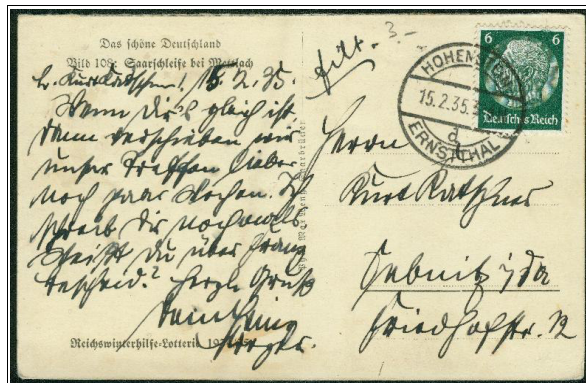 Das schöne Deutschland
Bild 108: Saarschleife bei Mettlach
L. Kurt Ratschner! 15.2.35.
Wenn Dir's gleich ist
dann verschieben wir
unser Treffen lieber
noch paar Wochen. Ich
schreib Dir nochmals.
Weißt Du über
Bescheid? Herzl. Gruß
Dein
Reichswinterhilfe-Lotterie
3.-
HOHENSTEIN-
15.2.35.
d
ERNSTTHAL
6 6
Deutsches Reich
Herrn
Kurt Ratschner
Sebnitz i/Sa
Friedhofstr. 12